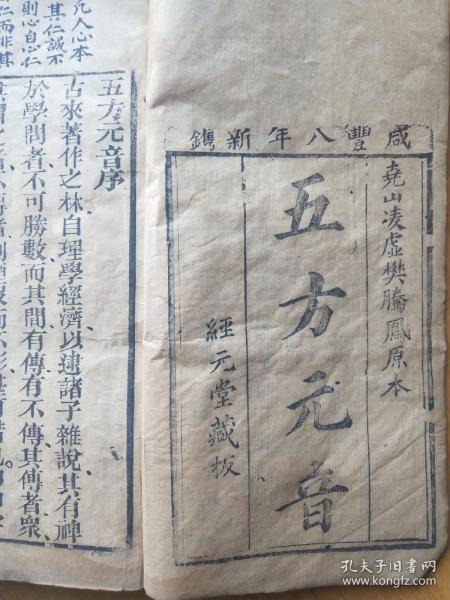 咸豐八年新鐫
堯山凌虛樊騰鳳原本
五方元音
經元堂藏板
五方元音序
古來著作之林自理學經濟以逮諸子雜說其有裨
於學問者不可勝數而其間有傳有不傳其傳者衆
凡人心本
其仁誠不
則心自心仁
仁而非其
孔夫子旧书网
www.kongfz.com